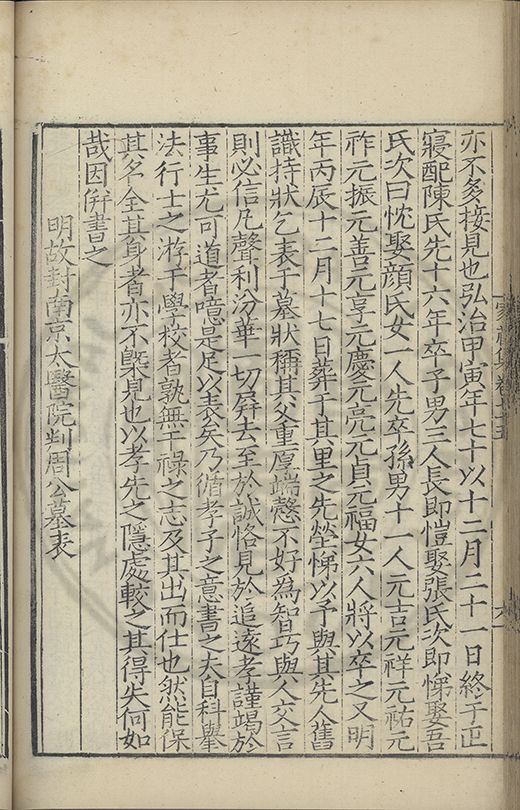 亦不多接見也弘治甲寅年七十以十二月二十一日終于正
寢配陳氏先十六年卒子男三人長即愷娶張氏次即悌娶吾
氏次曰忱娶顏氏女一人先卒孫男十一人元吉元祥元祐元
祚元振元善元享元慶元亮元貞元福女六人將以卒之又明
年丙辰十二月十七日葬于其里之先塋悌以予與其先人舊
識持狀乞表于墓狀稱其父重厚端慤不好為智巧與人交言
則必信凡聲利汾華一切屏去至於誠恪見於追遠孝謹竭於
事生尤可道者噫是足以表矣乃循孝子之意書之夫自科舉
法行士之游于學校者孰無干祿之志及其出而仕也然能保
其名全其身者亦不槩見也以孝先之隱處較之其得失何如
哉因併書之
明故封南京太醫院判周公墓表
家藏集卷